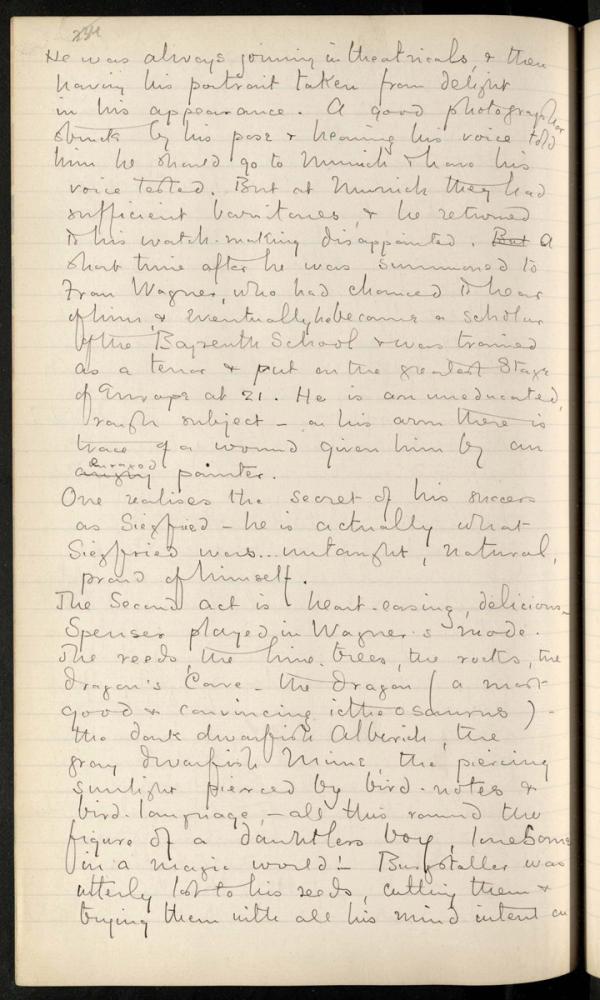 234
He was always joining in theatricals, & then
having his portrait taken from delight
in his appearance. A good photographer
struck by his pose & hearing his voice told
him he should go to Munich & have his
voice tested. But at Munich they had
sufficient baritones, & he returned
to his watch-making disappointed. But A
short time after he was summoned to
Frau Wagner, who had chanced to hear
of him, & eventually he became a scholar
of the Bayreuth School & was trained
as a tenor & put on the greatest Stage
of Europe at 21. He is an uneducated,
rough subject — on his arm there is
trace of a wound given him by an
enraged
angry painter.
One realises the secret of his success
as Siegfried — he is actually what
Siegfried was... untaught, natural,
proud of himself.
The Second act is heart-easing, delicious —
Spenser played in Wagner's mode.
The reeds, the lime-trees, the rocks, the
dragon's Cave — the dragon (a most
good & convincing icttheosaurus) —
the dark dwarfish Alberich, the
gray dwarfish Mime, the piercing
sunlight pierced by bird-notes &
bird-language, — all this round the
figure of a dauntless boy, lonesome
in a magic world! — Burgstaller was
utterly lost to his reeds, cutting them &
trying them with all his mind intent on